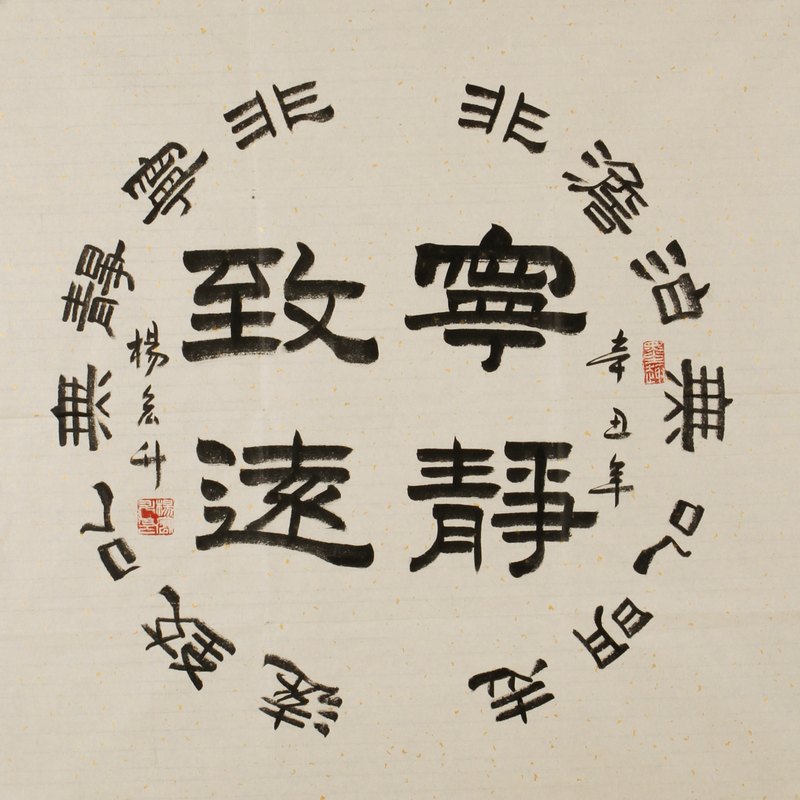 寧靜
致遠
非澹泊無以明志
非寧靜無以致遠
辛丑年
楊宏升